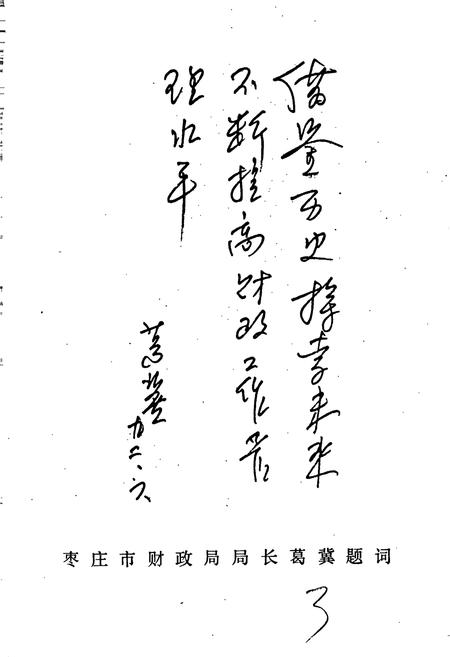 借鉴历史 探索未来
不断提高财政工作管
理水平
葛冀
九二.六
枣庄市财政局局长葛冀题词
3